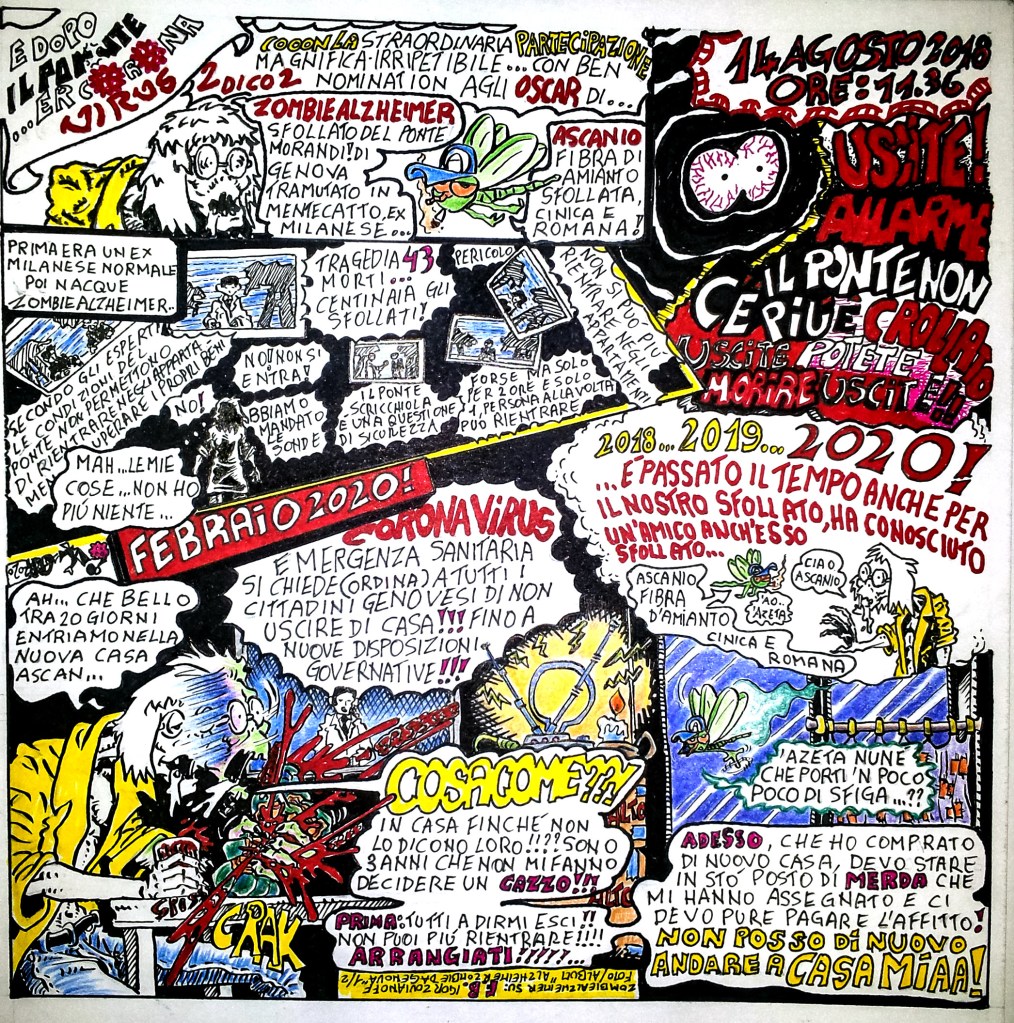 E DOPO
IL PONTE
...ER CORONA
VIRUS
COOON LA STRAORDINARIA PARTECIPAZIONE
MAGNIFICA-IRRIPETIBILE... CON BEN
2 DICO 2 NOMINATION AGLI OSCAR DI...
ZOMBIEALZHEIMER
SFOLLATO DEL PONTE
MORANDI! DI
GENOVA
TRAMUTATO IN
MENTECATTO, EX
MILANESE...
ASCANIO
FIBRA DI
AMIANTO
SFOLLATA,
CINICA E
ROMANA!
14 AGOSTO 2018
ORE: 11.36
USCITE!
ALLARME
IL PONTE NON
C'E PIU E CROLLATO
USCITE POTETE
MORIRE USCITE!!
PRIMA ERA UN EX
MILANESE NORMALE
POI NACQUE
ZOMBIEALZHEIMER.
TRAGEDIA 43
MORTI...
CENTINAIA GLI
SFOLLATI!
PERICOLO
NON SI PUO' PIU'
RIENTRARE NEGLI
APPARTAMENTI
SECONDO GLI ESPERTI
LE CONDIZIONI DEL
PONTE NON PERMETTONO
DI RIENTRARE NEGLI APPARTA
MENTI
RECUPERARE I PROPRI BENI
NO! NON SI
ENTRA!
NO!
ABBIAMO
MANDATO
LE SONDE
IL PONTE
SCRICCHIOLA
E UNA QUESTIONE
DI SICUREZZA
FORSE MA SOLO
PER 2 ORE E SOLO
1, PERSONA ALLA VOLTA
PUÒ RIENTRARE
MAH... LE MIE
COSE... NON HO
PIÚ NIENTE...
2018... 2019... 2020!
...É PASSATO IL TEMPO ANCHE PER
IL NOSTRO SFOLLATO, HA CONOSCIUTO
UN'AMICO ANCH'ESSO
SFOLLATO...
ASCANIO
FIBRA
D'AMIANTO
CINICA E
ROMANA
'AO..
'AZETA
CIAO
ASCANIO
FEBRAIO 2020!
CORONAVIRUS
EMERGENZA SANITARIA
SI CHIEDE (ORDINA) A TUTTI I
CITTADINI GENOVESI DI NON
USCIRE DI CASA!!! FINO A
NUOVE DISPOSIZIONI
GOVERNATIVE!!!
AH... CHE BELLO
TRA 20 GIORNI
ENTRIAMO NELLA
NUOVA CASA
ASCAN...
CRAK
COSACOME???!
IN CASA FINCHÉ NON
LO DICONO LORO!!!?? SONO
3 ANNI CHE NON MI FANNO
DECIDERE UN CAZZO!!!
PRIMA: TUTTI A DIRMI ESCI!!
NON PUOI PIÚ RIENTRARE!!!!
ARRANGIATI?????...
ZOMBIEALZHEIMER SU: F.B. IGOR ZOVIANOFF
FOTO (ALBUM "ALZHEIMER ZOMBIE DA GENOVA" 1/2)
'AZETA NUN É
CHE PORTI 'N POCO
POCO DI SFIGA...??
ADESSO, CHE HO COMPRATO
DI NUOVO CASA, DEVO STARE
IN STÓ POSTO DI MERDA CHE
MI HANNO ASSEGNATO E CI
DEVO PURE PAGARE L'AFFITTO!
NON POSSO DI NUOVO
ANDARE A CASA MÍAA!